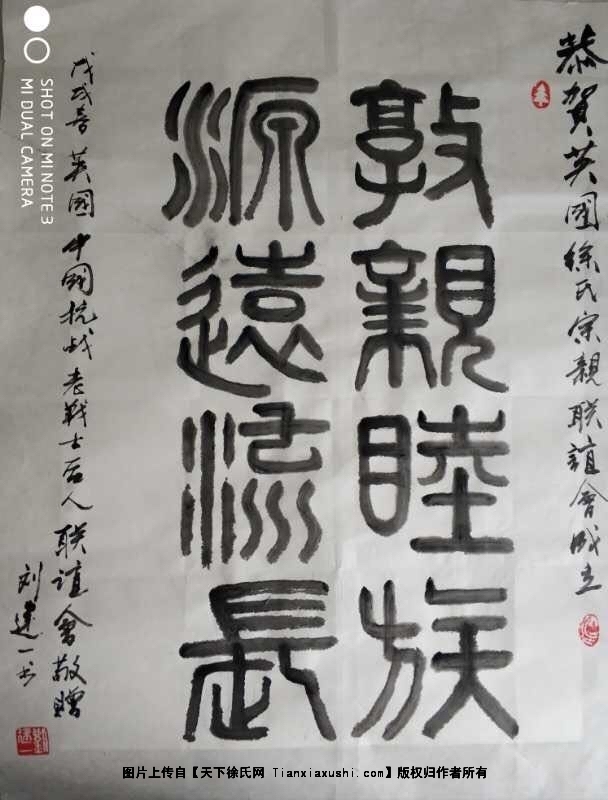 恭賀英國徐氏宗親联誼會成立
敦親睦族
源遠流長
戊戌春 英國中國抗战老戰士后人联誼會敬贈
刘建一书
SHOT ON MI NOTE 3
MI DUAL CAMERA
图片上传自【天下徐氏网 Tianxiaxushi.com】版权归作者所有